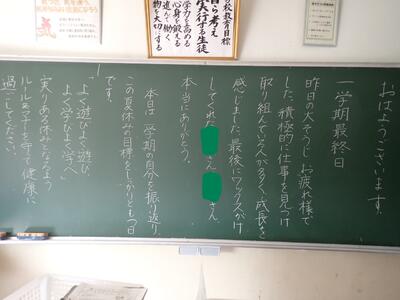 学校教育目標
自ら考え
実行する生徒
学力を高める
心身を鍛える
進んで働く
物を大切にする
おはようございます。
一学期最終日
昨日の大そうじ、お疲れ様で
した。積極的に仕事を見つけ
取り組んでいる人が多く、成長を
感じました。最後にワックスがけ
してくれた さん、 さん、
本当にありがとう。
本日は一学期の自分を振り返り、
この夏休みの目標をしっかりともつ日
です。
よく遊びよく遊び、
よく学びよく学べ
実りある休みとなるよう
ルール&マナーを守って健康に
過ごしてください。